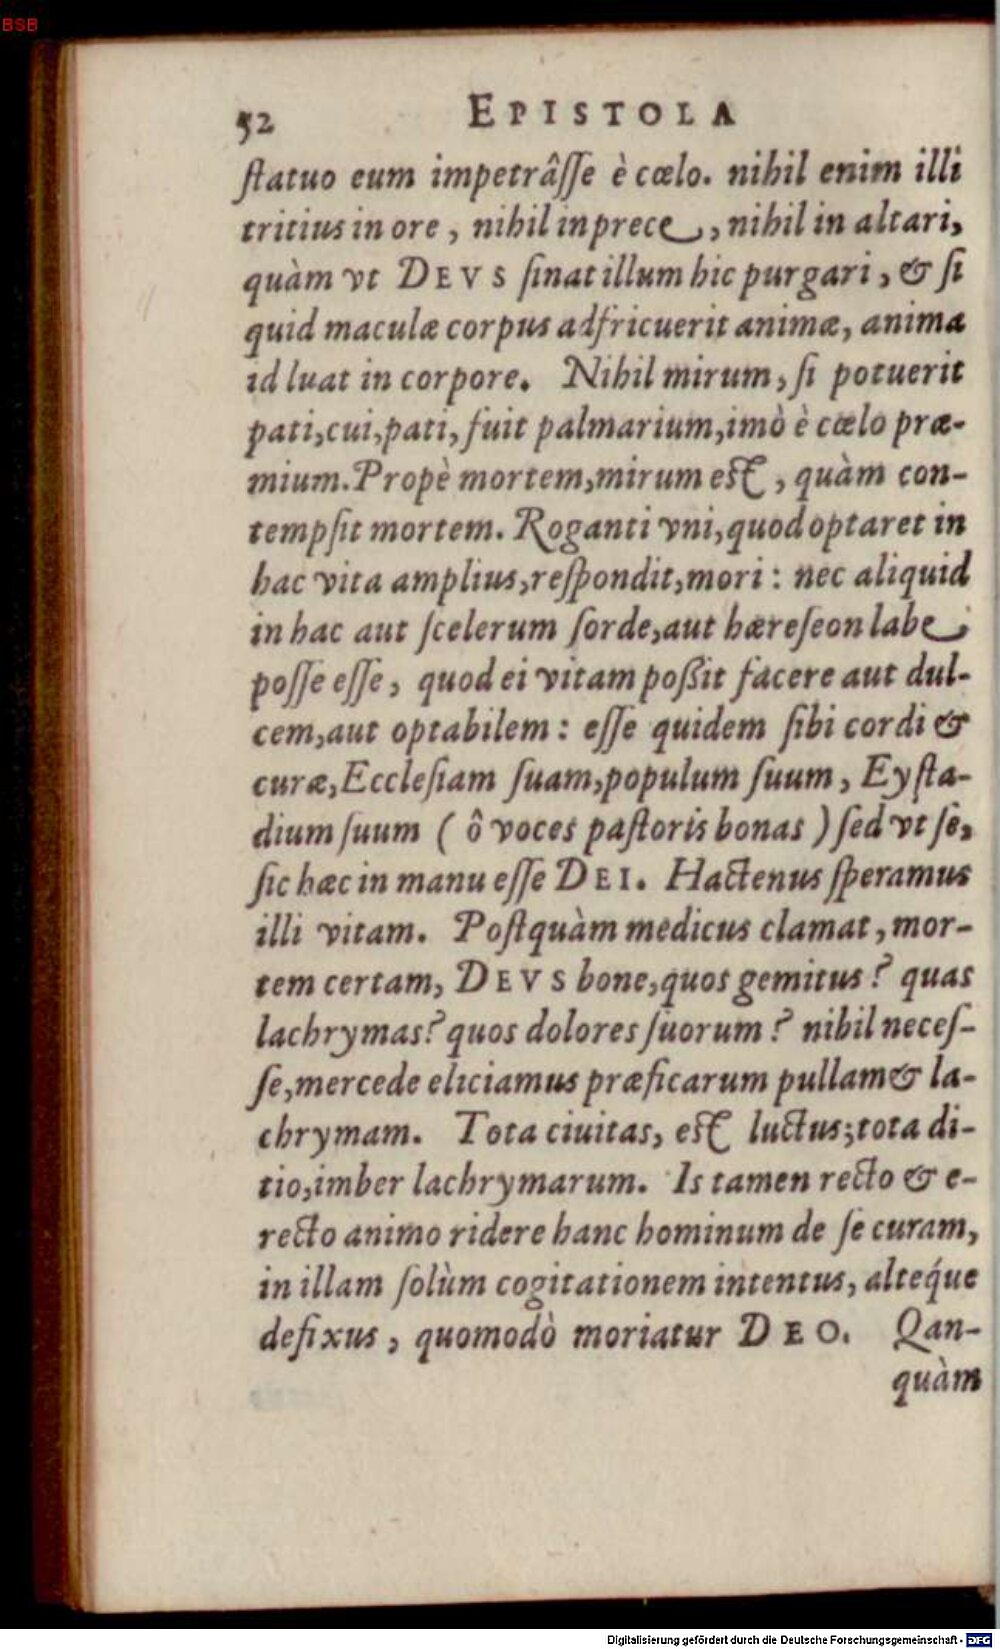 BSB
52 EPISTOLA
ſtatuo eum impetrâſſe è cœlo. nihil enim illi
tritius in ore, nihil in prece, nihil in altari,
quàm vt DEVS ſinat illum hic purgari, & ſi
quid maculæ corpus adfricuerit animæ, anima
id luat in corpore. Nihil mirum, ſi potuerit
pati, cui, pati, fuit palmarium, imò è cœlo præ-
mium. Propè mortem, mirum eſt, quàm con-
tempſit mortem. Roganti vni, quod optaret in
hac vita amplius, reſpondit, mori: nec aliquid
in hac aut ſcelerum ſorde, aut hæreſeon labe
poſſe eſſe, quod ei vitam poßit facere aut dul-
cem, aut optabilem: eſſe quidem ſibi cordi &
curæ, Eccleſiam ſuam, populum ſuum, Eyſta-
dium ſuum (ô voces paſtoris bonas) ſed vt ſe,
ſic hæc in manu eſſe DEI. Hactenus ſperamus
illi vitam. Poſtquàm medicus clamat, mor-
tem certam, DEVS bone, quos gemitus? quas
lachrymas? quos dolores ſuorum? nihil neceſ-
ſe, mercede eliciamus præficarum pullam & la-
chrymam. Tota ciuitas, eſt luctus; tota di-
tio, imber lachrymarum. Is tamen recto & e-
recto animo ridere hanc hominum de ſe curam,
in illam ſolùm cogitationem intentus, alteq́ue
defixus, quomodò moriatur DEO. Qan-
quàm
Digitalisierung gefördert durch die Deutsche Forschungsgemeinschaft - DFG